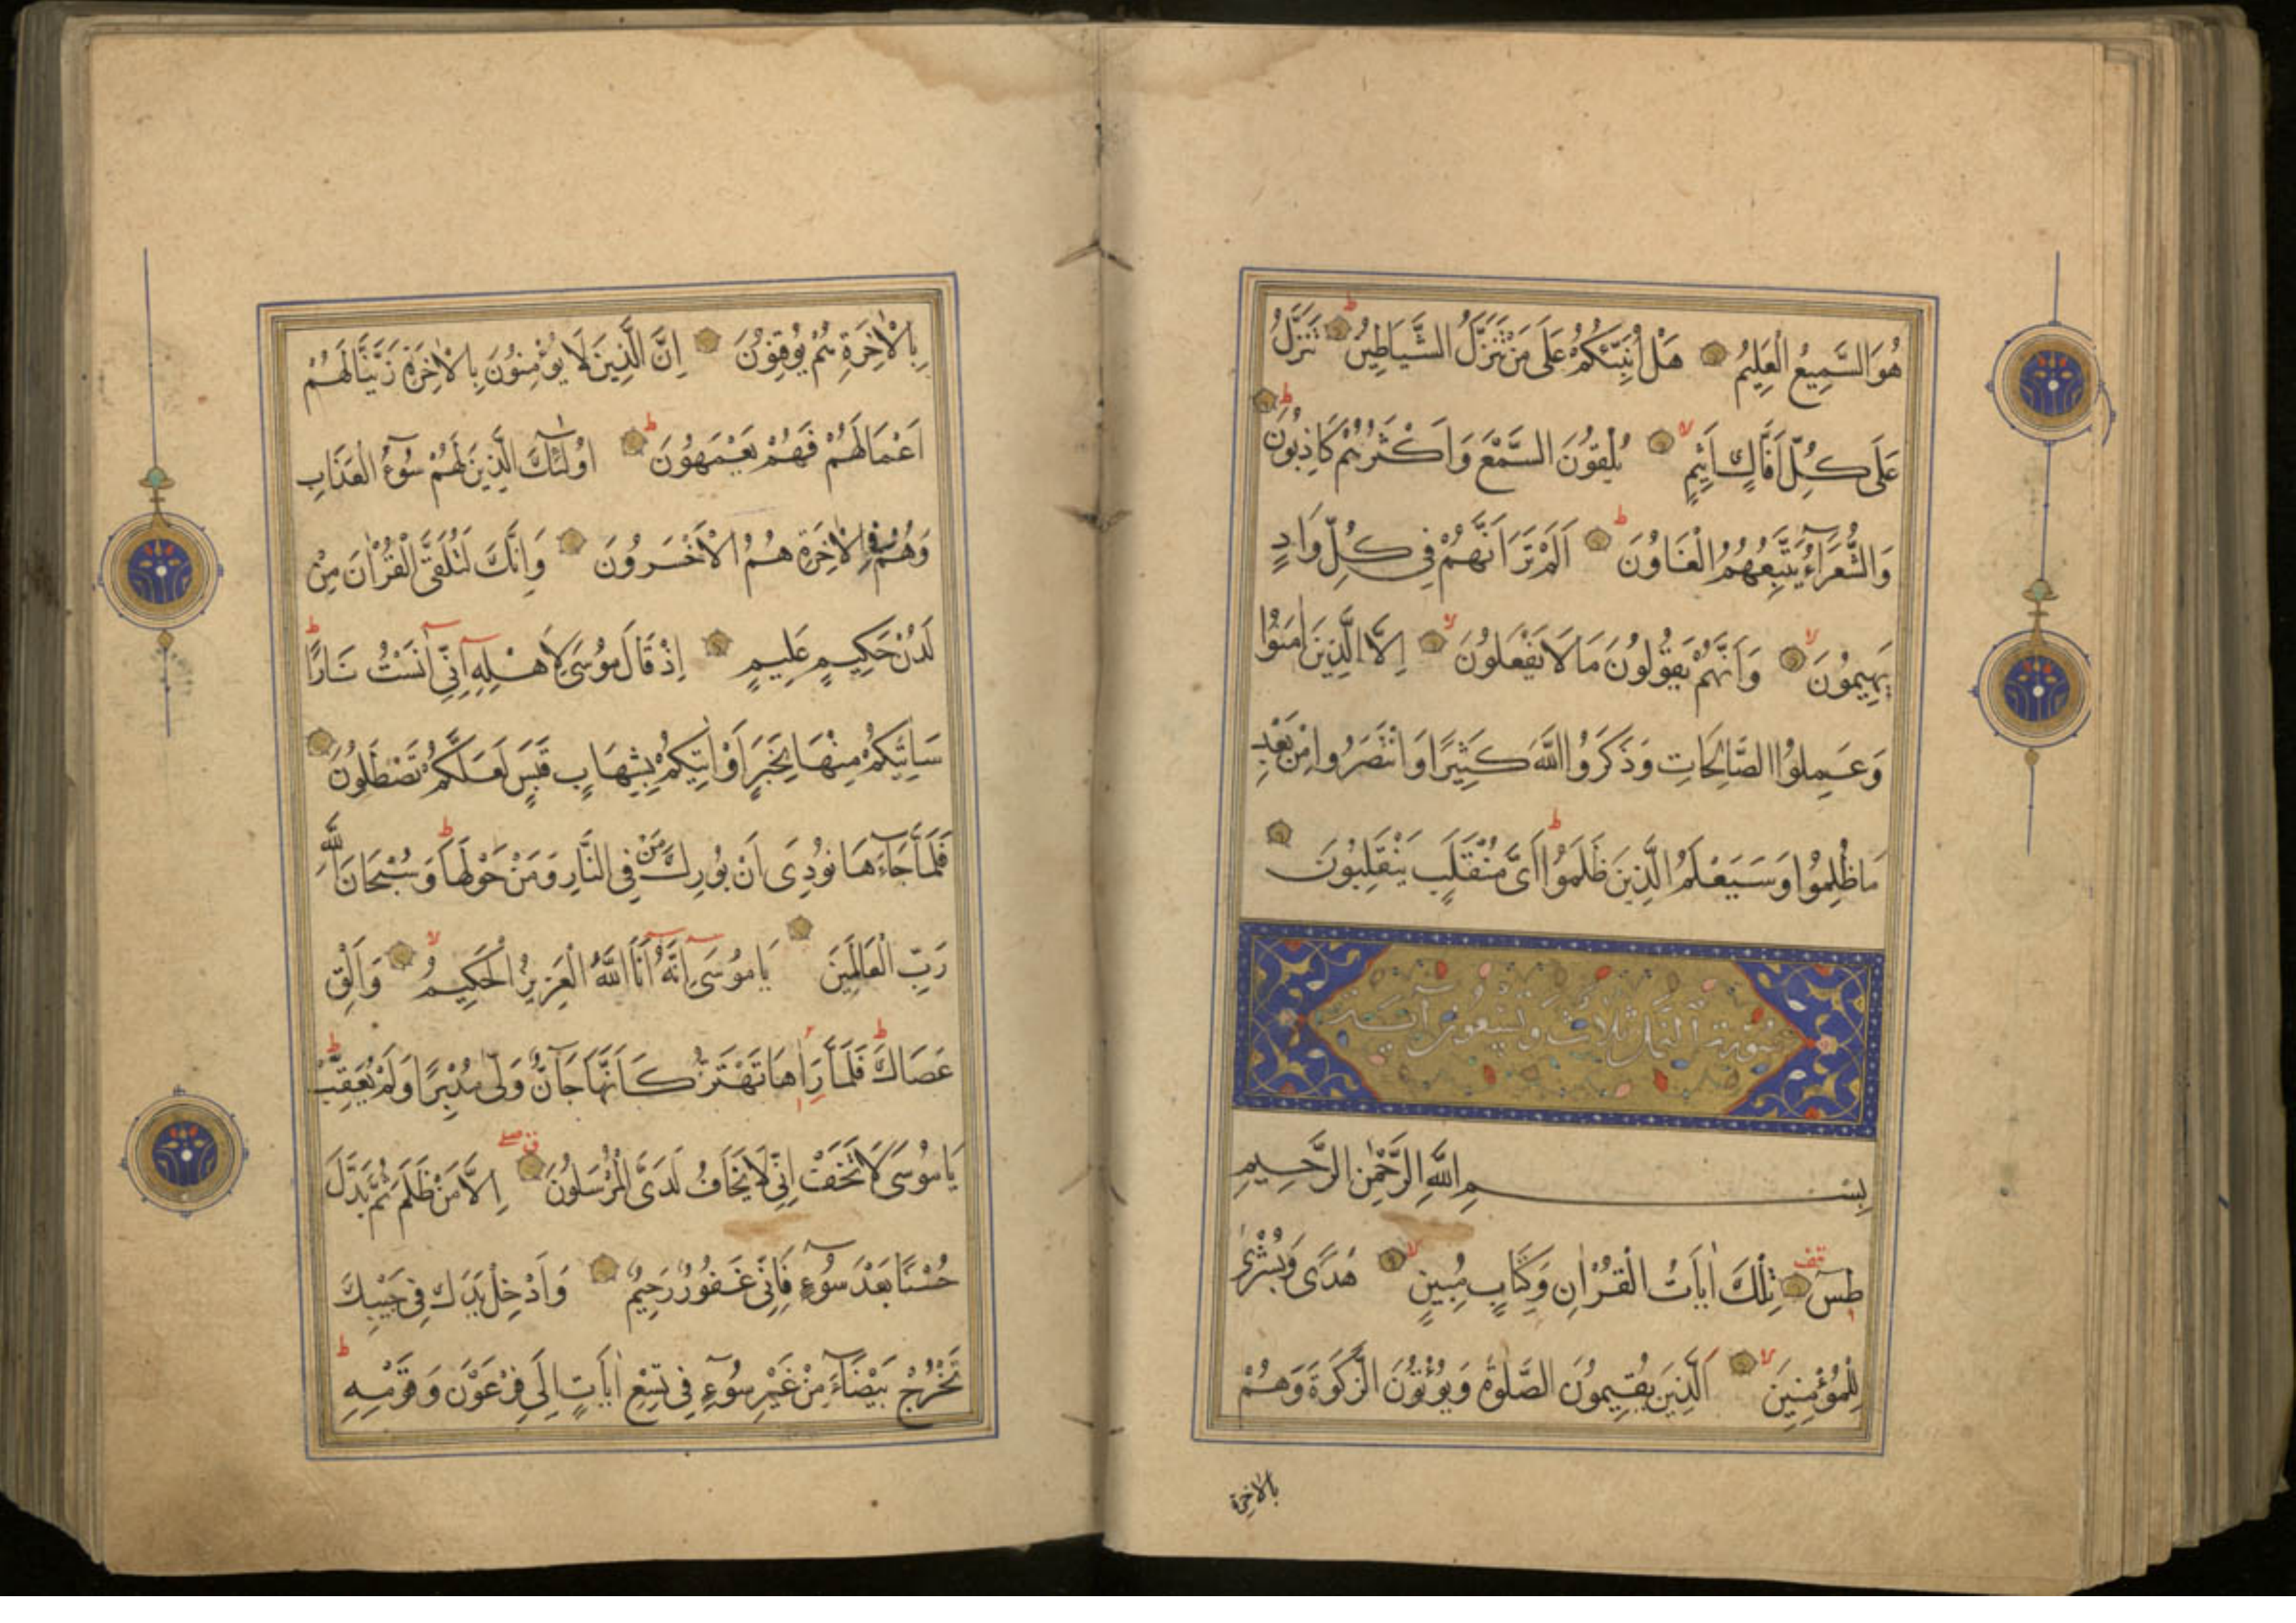 هُوَ السَّمِيعُ الْعَلِيمُ هَلْ أُنَبِّئُكُمْ عَلَى مَنْ تَنَزَّلُ الشَّيَاطِينُ تَنَزَّلُ
عَلَى كُلِّ أَفَّاكٍ أَثِيمٍ يُلْقُونَ السَّمْعَ وَأَكْثَرُهُمْ كَاذِبُونَ
وَالشُّعَرَاءُ يَتَّبِعُهُمُ الْغَاوُونَ أَلَمْ تَرَ أَنَّهُمْ فِي كُلِّ وَادٍ
يَهِيمُونَ وَأَنَّهُمْ يَقُولُونَ مَا لَا يَفْعَلُونَ إِلَّا الَّذِينَ اٰمَنُوا
وَعَمِلُوا الصَّالِحَاتِ وَذَكَرُوا اللَّهَ كَثِيرًا وَانْتَصَرُوا مِنْ بَعْدِ
مَا ظُلِمُوا وَسَيَعْلَمُ الَّذِينَ ظَلَمُوا أَيَّ مُنْقَلَبٍ يَنْقَلِبُونَ
سورة النمل ثلاث وتسعون آية
بِسْمِ اللَّهِ الرَّحْمٰنِ الرَّحِيمِ
طٰسٓ تِلْكَ اٰيَاتُ الْقُرْاٰنِ وَكِتَابٍ مُبِينٍ هُدًى وَبُشْرٰى
لِلْمُؤْمِنِينَ الَّذِينَ يُقِيمُونَ الصَّلٰوةَ وَيُؤْتُونَ الزَّكٰوةَ وَهُمْ
بالاخرة
بِالْاٰخِرَةِ هُمْ يُوقِنُونَ إِنَّ الَّذِينَ لَا يُؤْمِنُونَ بِالْاٰخِرَةِ زَيَّنَّا لَهُمْ
أَعْمَالَهُمْ فَهُمْ يَعْمَهُونَ اُولٰئِكَ الَّذِينَ لَهُمْ سُوءُ الْعَذَابِ
وَهُمْ فِي الْاٰخِرَةِ هُمُ الْأَخْسَرُونَ وَإِنَّكَ لَتُلَقَّى الْقُرْاٰنَ مِنْ
لَدُنْ حَكِيمٍ عَلِيمٍ إِذْ قَالَ مُوسَى لِأَهْلِهِ إِنِّي اٰنَسْتُ نَارًا
سَاٰتِيكُمْ مِنْهَا بِخَبَرٍ أَوْ اٰتِيكُمْ بِشِهَابٍ قَبَسٍ لَعَلَّكُمْ تَصْطَلُونَ
فَلَمَّا جَاءَهَا نُودِيَ أَنْ بُورِكَ مَنْ فِي النَّارِ وَمَنْ حَوْلَهَا وَسُبْحَانَ اللَّهِ
رَبِّ الْعَالَمِينَ يَا مُوسَى إِنَّهُ أَنَا اللَّهُ الْعَزِيزُ الْحَكِيمُ وَأَلْقِ
عَصَاكَ فَلَمَّا رَاٰهَا تَهْتَزُّ كَأَنَّهَا جَانٌّ وَلَّى مُدْبِرًا وَلَمْ يُعَقِّبْ
يَا مُوسَى لَا تَخَفْ إِنِّي لَا يَخَافُ لَدَيَّ الْمُرْسَلُونَ إِلَّا مَنْ ظَلَمَ ثُمَّ بَدَّلَ
حُسْنًا بَعْدَ سُوءٍ فَإِنِّي غَفُورٌ رَحِيمٌ وَأَدْخِلْ يَدَكَ فِي جَيْبِكَ
تَخْرُجْ بَيْضَاءَ مِنْ غَيْرِ سُوءٍ فِي تِسْعِ اٰيَاتٍ إِلَى فِرْعَوْنَ وَقَوْمِهِ